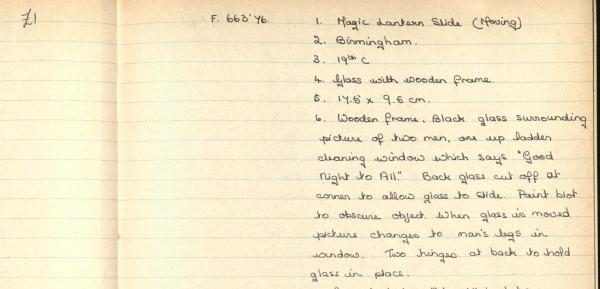 £1
F. 663'76.
1. Magic Lantern Slide (Moving)
2. Birmingham.
3. 19th C
4. Glass with wooden frame.
5. 17.5 x 9.6 cm.
6. Wooden frame. Black glass surrounding
picture of two men, one up ladder
cleaning window which says "Good
Night to All." Back glass cut off at
corner to allow glass to slide. Paint blot
to obscure object. When glass is moved
picture changes to man's legs in
window. Two hinges at back to hold
glass in place.